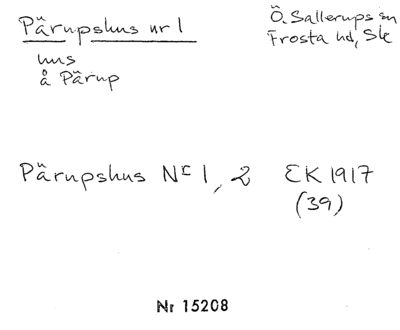 Pärupshus nr 1
hus
å Pärup
Ö. Sallerups sn
Frosta hd, Sk
Pärupshus Nr 1, 2 EK 1917
(39)
Nr 15208